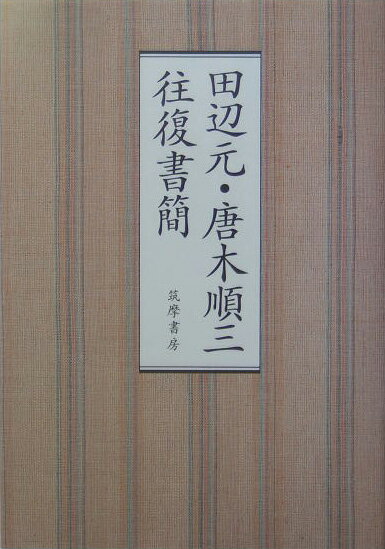 田辺元・唐木順三
往復書簡
筑摩書房